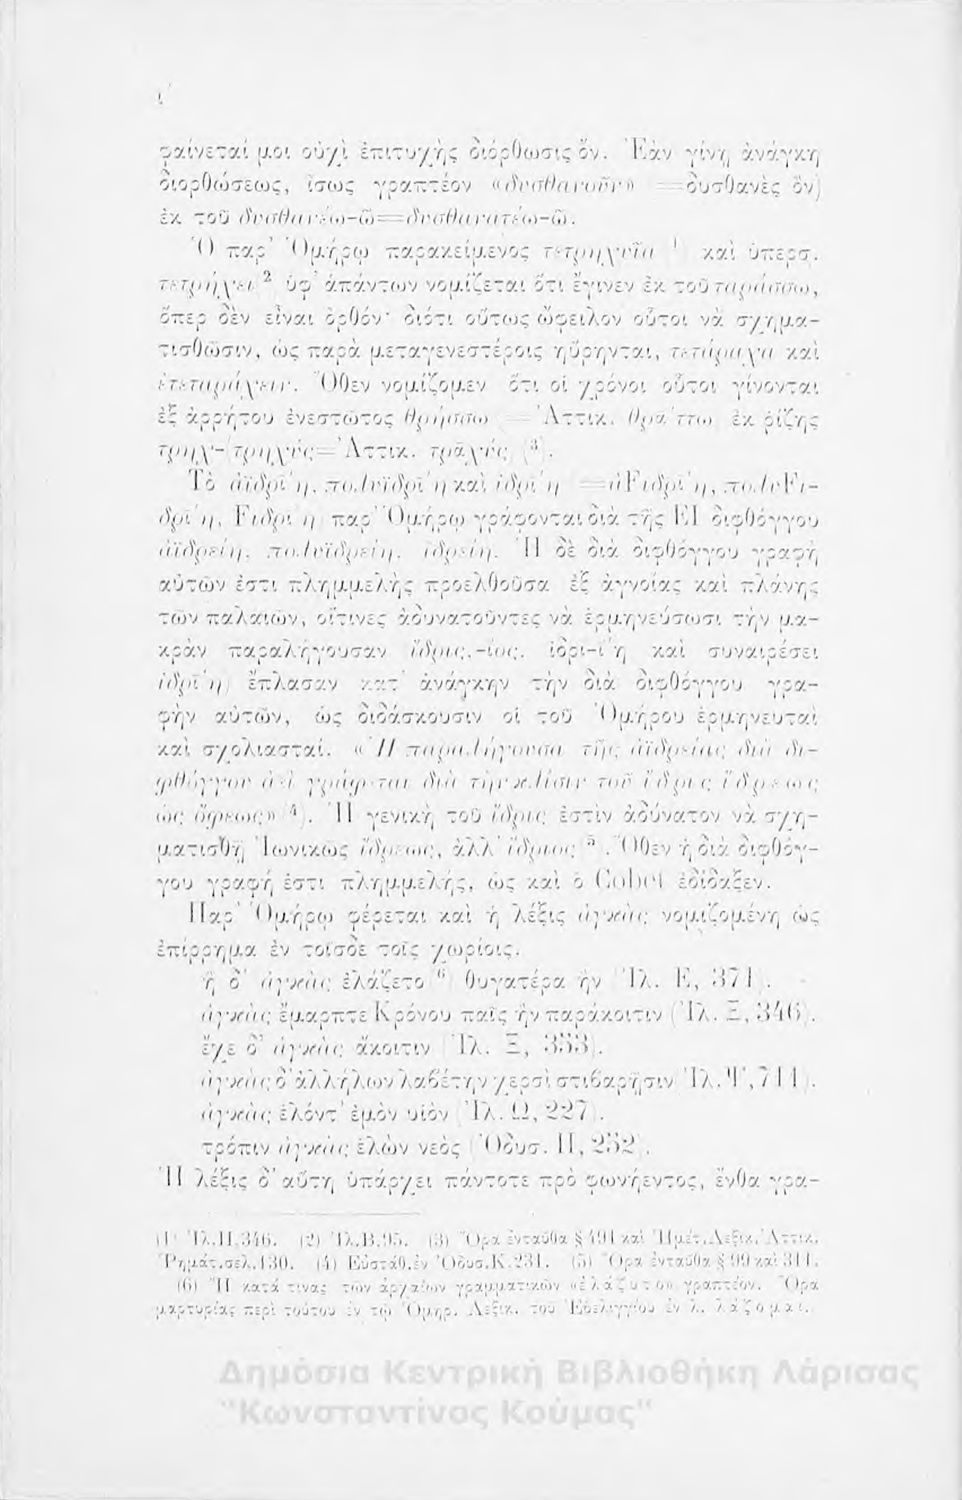 φαίνεταί μοι οὐχὶ ἐπιτυχὴς διόρθωσις ὄν. Ἐὰν γίνῃ ἀνάγκη
διορθώσεως, ἴσως γραπτέον «δυσθανοῦν» (=δυσθανὲς ὄν)
ἐκ τοῦ δυσθανέω-ῶ=δυσθανατέω-ῶ.
Ὁ παρ' Ὁμήρῳ παρακείμενος τετρηχυῖα (1) καὶ ὑπερσ.
τετρήχει (2) ὑφ' ἁπάντων νομίζεται ὅτι ἔγινεν ἐκ τοῦ ταράσσω,
ὅπερ δὲν εἶναι ὀρθόν· διότι οὕτως ὤφειλον οὗτοι νὰ σχημα-
τισθῶσιν, ὡς παρὰ μεταγενεστέροις ηὕρηνται, τετάραχα καὶ
ἐτεταράχειν. Ὅθεν νομίζομεν ὅτι οἱ χρόνοι οὗτοι γίνονται
ἐξ ἀρρήτου ἐνεστῶτος θρήσσω (= Ἀττικ. θράττω) ἐκ ῥίζης
τρηχ-(τρηχύς=Ἀττικ. τραχύς) (3).
Τὸ ἀϊδρίη, πολυϊδρίη καὶ ἰδρίη =ἀFιδρίη, πολυFι-
δρίη, Fιδρίη παρ' Ὁμήρῳ γράφονται διὰ τῆς ΕΙ διφθόγγου
ἀϊδρείη, πολυϊδρείη, ἰδρείη. Ἡ δὲ διὰ διφθόγγου γραφὴ
αὐτῶν ἐστι πλημμελὴς προελθοῦσα ἐξ ἀγνοίας καὶ πλάνης
τῶν παλαιῶν, οἵτινες ἀδυνατοῦντες νὰ ἑρμηνεύσωσι τὴν μα-
κρὰν παραλήγουσαν (ἴδρις,-ιος, ἰδρι-ίη καὶ συναιρέσει
ἰδρίη) ἔπλασαν κατ' ἀνάγκην τὴν διὰ διφθόγγου γρα-
φὴν αὐτῶν, ὡς διδάσκουσιν οἱ τοῦ Ὁμήρου ἑρμηνευταὶ
καὶ σχολιασταί. «Ἡ παραλήγουσα τῆς ἀϊδρείας διὰ δι-
φθόγγου ἀεὶ γράφεται διὰ τὴν κλίσιν τοῦ ἴδρις ἴδρεως
ὡς ὄφεως» (4). Ἡ γενικὴ τοῦ ἴδρις ἐστὶν ἀδύνατον νὰ σχη-
ματισθῇ Ἰωνικῶς ἴδρεως, ἀλλ' ἴδριος (5). Ὅθεν ἡ διὰ διφθόγ-
γου γραφὴ ἐστι πλημμελής, ὡς καὶ ὁ Cobet ἐδίδαξεν.
Παρ' Ὁμήρῳ φέρεται καὶ ἡ λέξις ἀγκὰς νομιζομένη ὡς
ἐπίρρημα ἐν τοῖσδε τοῖς χωρίοις.
ἡ δ' ἀγκὰς ἐλάζετο (6) θυγατέρα ἣν (Ἰλ. Ε, 371).
ἀγκὰς ἔμαρπτε Κρόνου παῖς ἣν παράκοιτιν (Ἰλ. Ξ, 346).
ἔχε δ' ἀγκὰς ἄκοιτιν (Ἰλ. Ξ, 353).
ἀγκὰς δ' ἀλλήλων λαβέτην χερσὶ στιβαρῇσιν (Ἰλ. Ψ, 711).
ἀγκὰς ἑλόντ' ἐμὸν υἱὸν (Ἰλ. Ω, 227).
τρόπιν ἀγκὰς ἑλὼν νεὸς (Ὀδυσ. Η, 252).
Ἡ λέξις δ' αὕτη ὑπάρχει πάντοτε πρὸ φωνήεντος, ἔνθα γρα-
(1) Ἰλ.Η,346. (2) Ἰλ.Β,95. (3) Ὅρα ἐνταῦθα § 491 καὶ Ἡμέτ.Λεξικ.Ἀττικ.
Ῥημάτ.σελ.130. (4) Εὐστάθ.ἐν Ὀδυσ.Κ.231. (5) Ὅρα ἐνταῦθα § 99 καὶ 311.
(6) Ἡ κατά τινας τῶν ἀρχαίων γραμματικῶν «ἐλάζυτο» γραπτέον. Ὅρα
μαρτυρίας περὶ τούτου ἐν τῷ Ὁμηρ. Λεξικ. τοῦ Ἐβελιγγίου ἐν λ. λάζομαι.
Δημόσια Κεντρική Βιβλιοθήκη Λάρισας
"Κωνσταντίνος Κούμας"